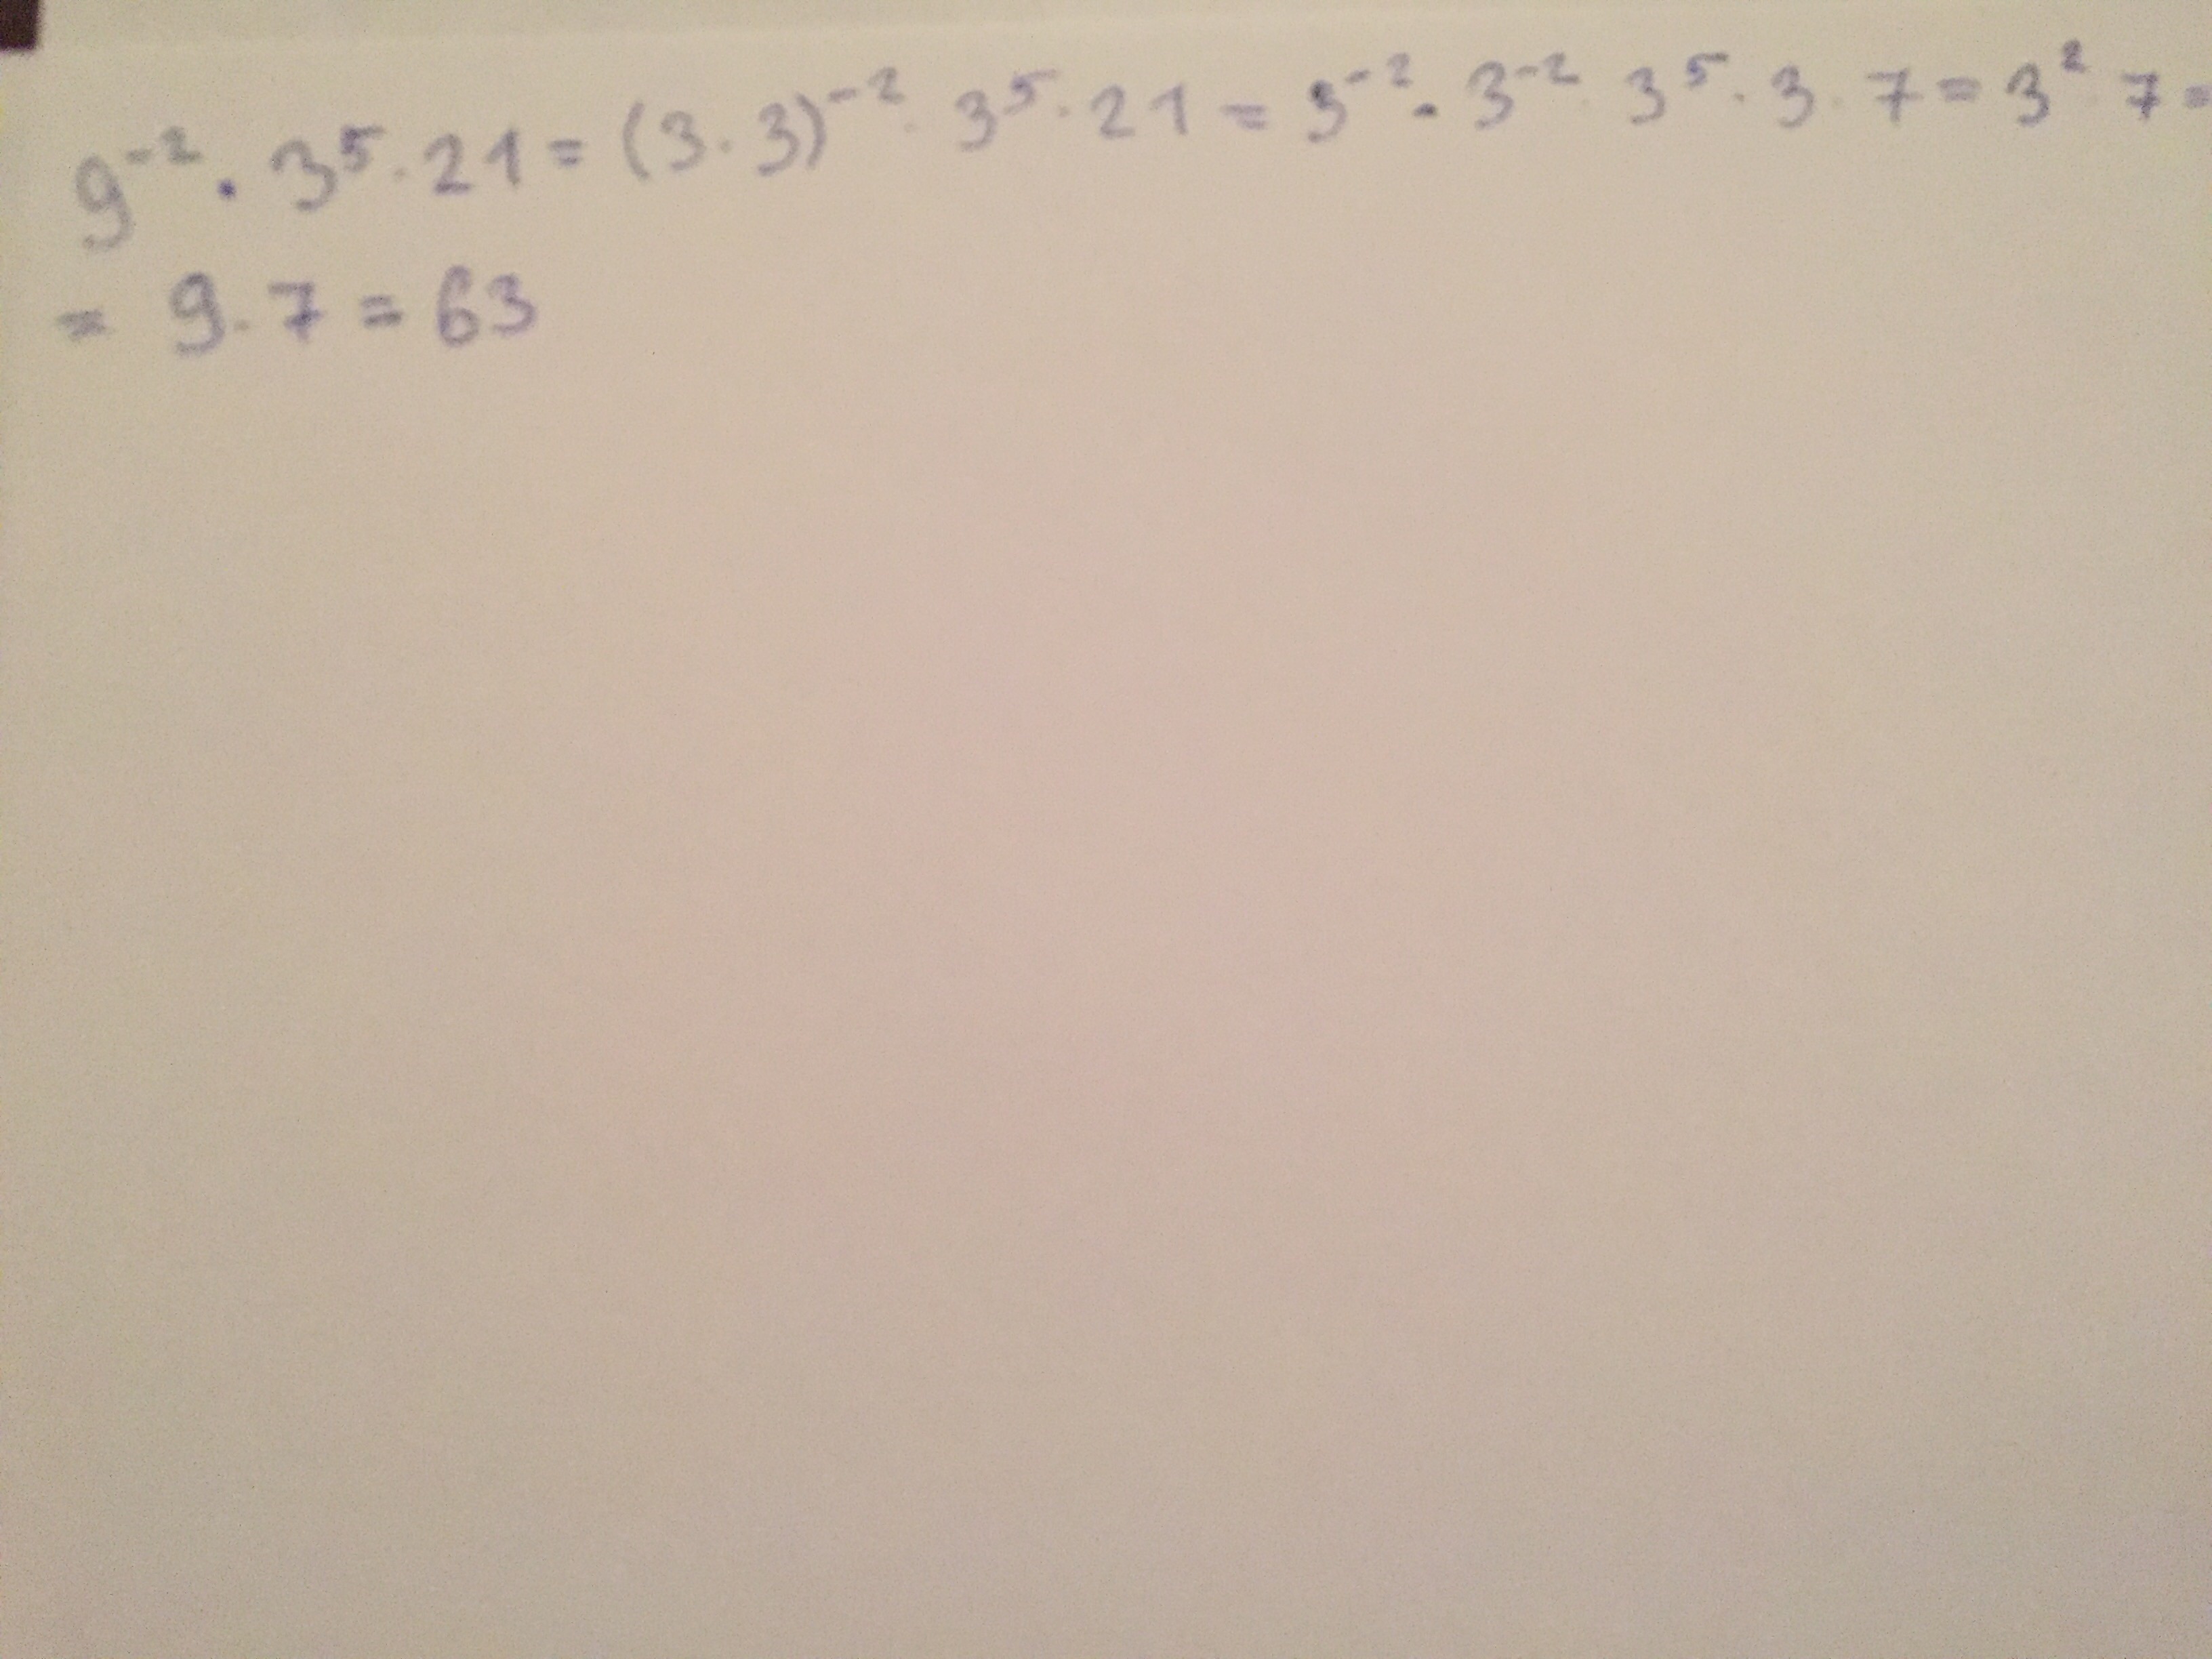 9⁻² · 3⁵ · 21 = (3 · 3)⁻² · 3⁵ · 21 = 3⁻² · 3⁻² · 3⁵ · 3 · 7 = 3² · 7 =
= 9 · 7 = 63